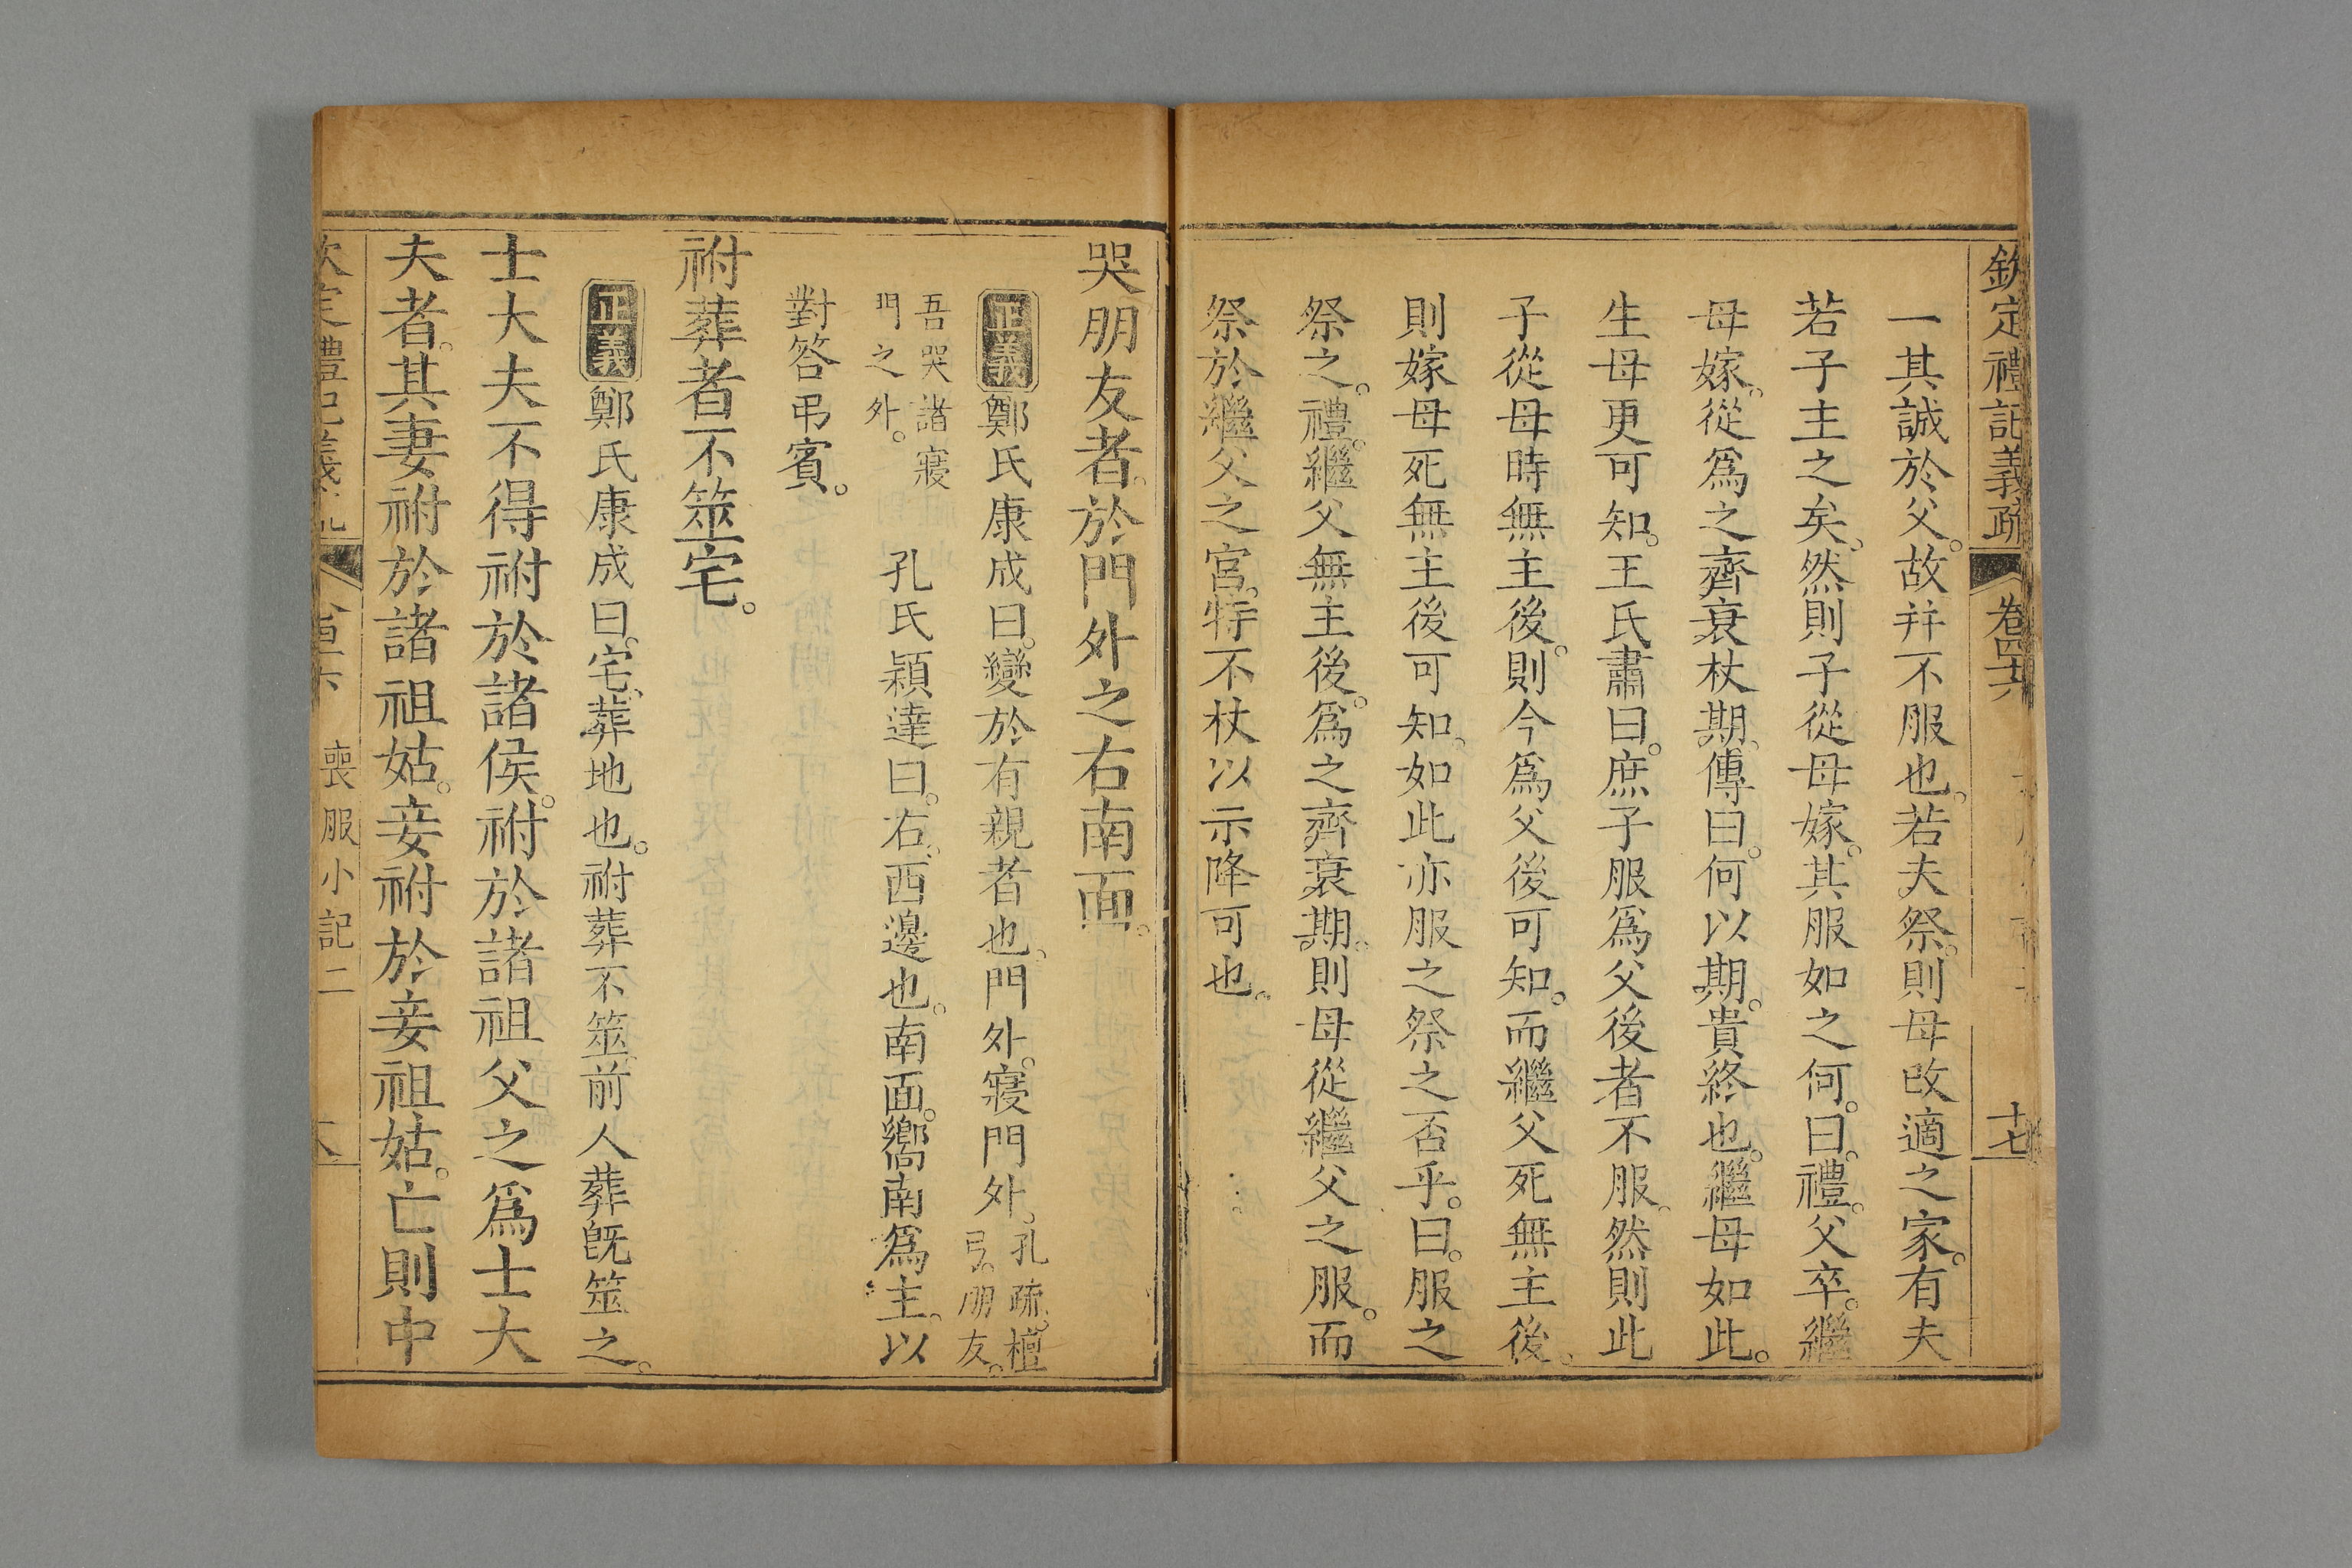 欽定禮記義疏 卷四十六 十七
一其誠於父。故并不服也。若夫祭。則母改適之家。有夫
若子主之矣。然則子從母嫁。其服如之何。曰。禮。父卒。繼
母嫁。從爲之齊衰杖期。傳曰。何以期。貴終也。繼母如此。
生母更可知。王氏肅曰。庶子服爲父後者不服。然則此
子從母時無主後。則今爲父後可知。而繼父死無主後。
則嫁母死無主後可知。如此亦服之祭之否乎。曰。服之
祭之。禮。繼父無主後。爲之齊衰期。則母從繼父之服。而
祭於繼父之宮。特不杖以示降可也。
哭朋友者。於門外之右南面。
正義鄭氏康成曰。變於有親者也。門外。寢門外。孔疏。檀
弓。朋友。
吾哭諸寢
門之外。孔氏穎達曰。右。西邊也。南面。嚮南爲主。以
對答弔賓。
祔葬者不筮宅。
正義鄭氏康成曰。宅。葬地也。祔葬不筮。前人葬旣筮之。
士大夫不得祔於諸侯。祔於諸祖父之爲士大
夫者。其妻祔於諸祖姑。妾祔於妾祖姑。亡則中
喪服小記二